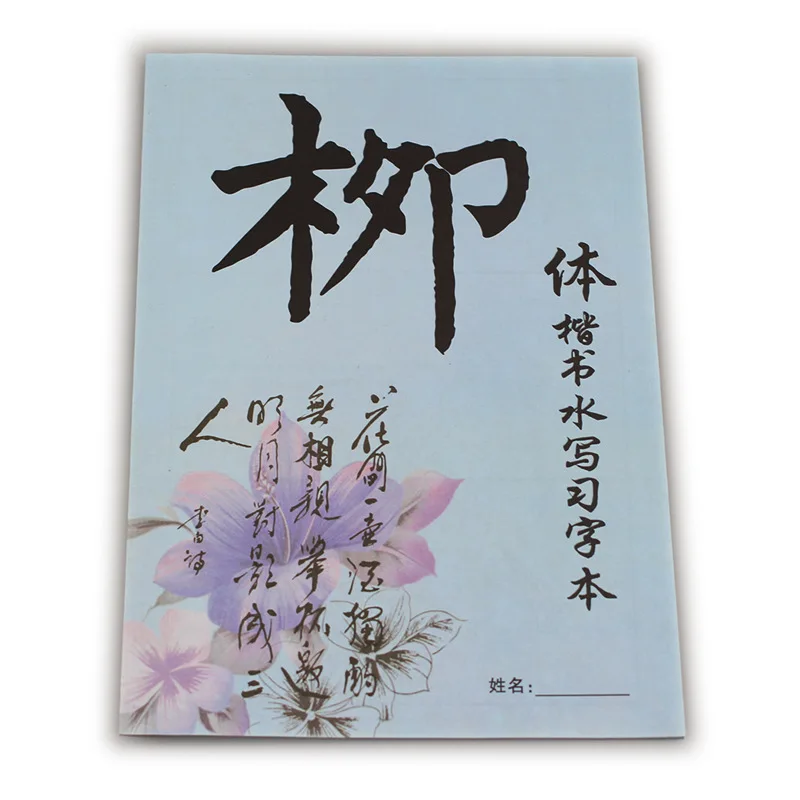 柳
体楷书水写习字本
花间一壶酒獨酌
無相親舉杯邀
明月對影成三
人
李白诗
姓名：